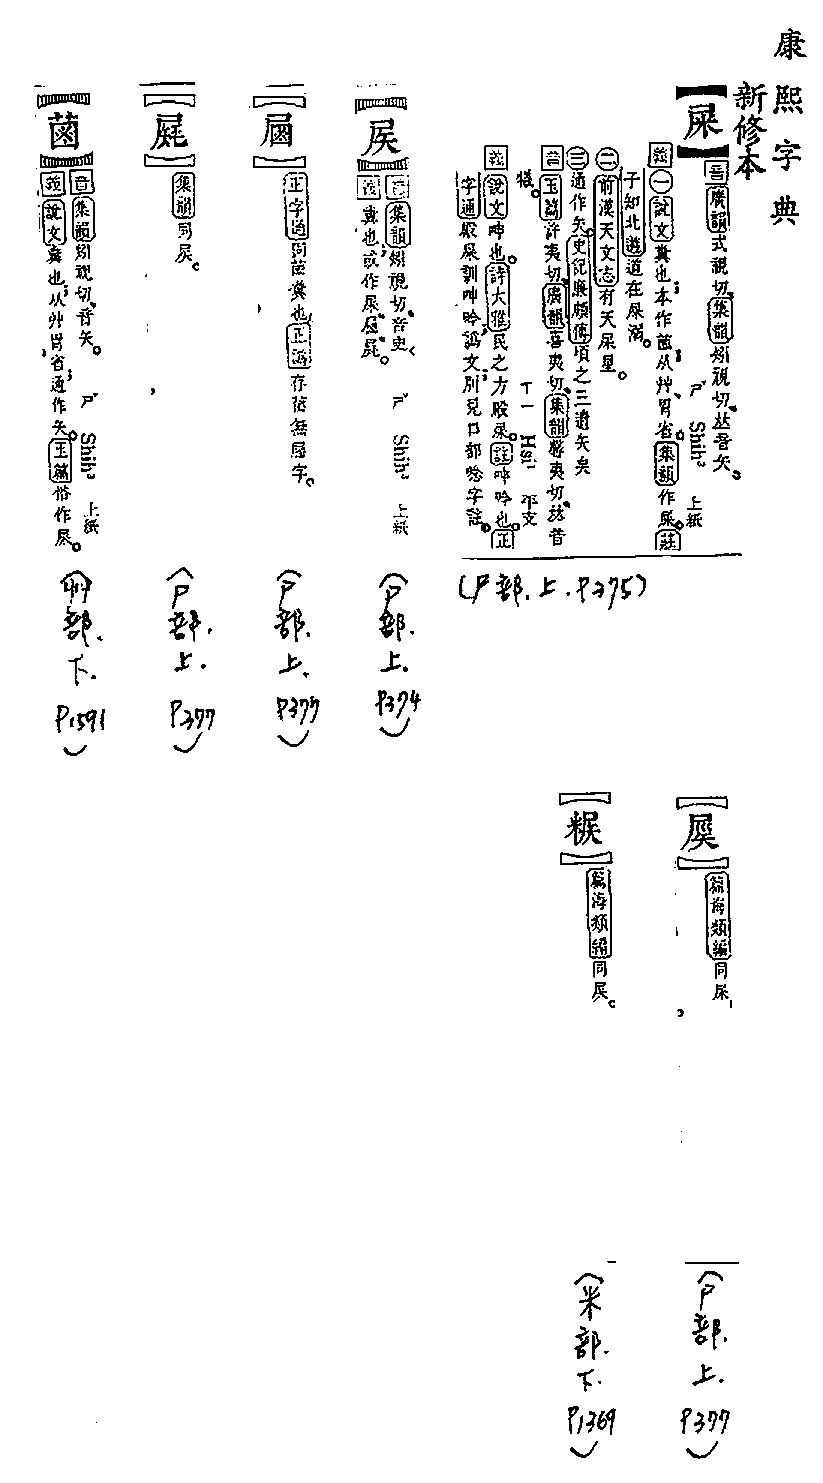 康熙字典
新修本
【屎】
音廣韻式視切集韻矧視切𠀤音矢。
ㄕˇ Shih³ 上紙
義㊀說文糞也本作𦳊从艸胃省集韻作屎。莊
子知北遊道在屎溺。
㊁前漢天文志有天屎星。
㊂通作矢。史記廉頗傳頃之三遺矢矣
音玉篇許夷切廣韻喜夷切集韻馨夷切𠀤音
ㄒㄧ Hsi¹ 平支
義說文呻也。詩大雅民之方殿屎。註呻吟也。正
字通殿屎訓呻吟譌文別見口部唸字註。
(尸部.上.P375)
音集韻矧視切音史
ㄕˇ Shih³ 上紙
義糞也或作屎
(尸部.上.P374)
正字通同菌糞也正譌存菡無
字。
(尸部.上.P377)
集韻同屎。
(尸部.上.P377)
【菌】
音集韻矧視切音矢。
ㄕˇ Shih³ 上紙
義說文糞也从艸胃省通作矢。玉篇俗作屎。
(艸部.下.P1591)
篇海類編同屎
(尸部.上.P377)
篇海類編同屎。
(米部.下.P1369)